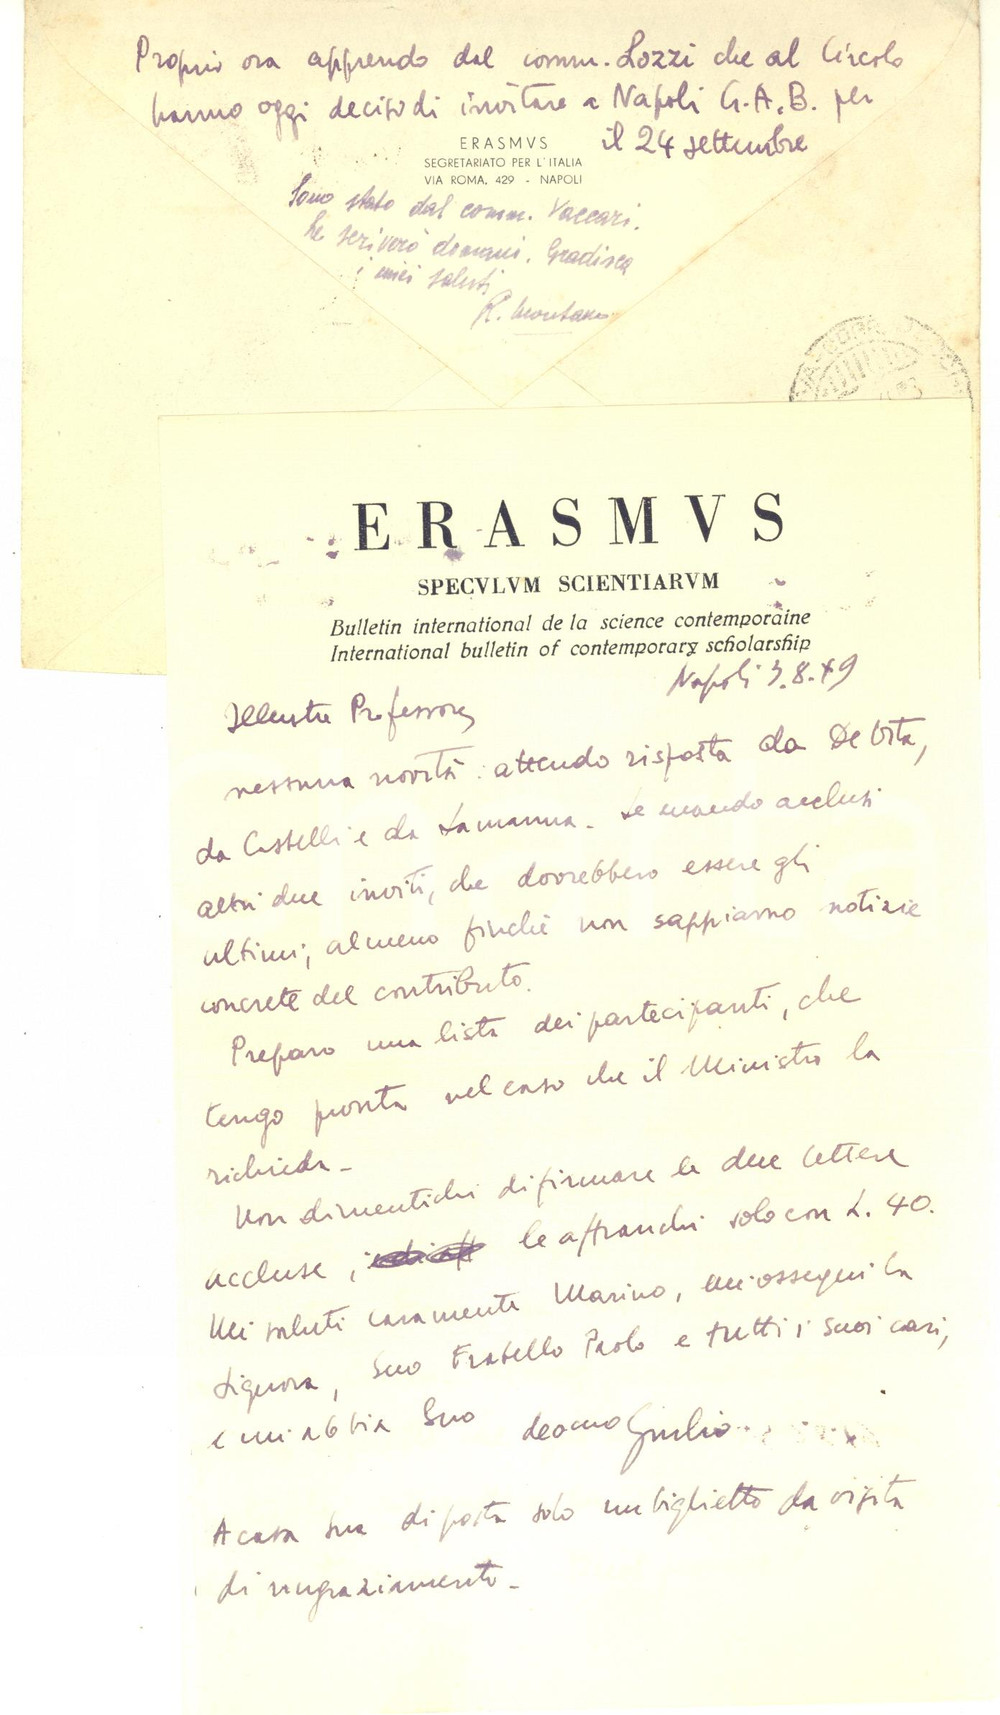 Proprio ora apprendo dal comm. Lozzi che al Circolo
hanno oggi deciso di invitare a Napoli G.A.B. per
il 24 settembre
ERASMVS
SEGRETARIATO PER L'ITALIA
VIA ROMA, 429 - NAPOLI
Sono stato dal comm. Vaccari.
Le scriverò domani. Gradisca
i miei saluti
R. Montano
ERASMVS
SPECVLVM SCIENTIARVM
Bulletin international de la science contemporaine
International bulletin of contemporary scholarship
Napoli 3.8.49
Illustre Professore,
nessuna novità: attendo risposta da De Vita,
da Castelli e da Lamanna. Le mando acclusi
altri due inviti, che dovrebbero essere gli
ultimi, almeno finchè non sappiamo notizie
concrete del contributo.
Preparo una lista dei partecipanti, che
tengo pronta nel caso che il Ministro la
richieda.
Non dimentichi di firmare le due lettere
accluse, le affranchi solo con L. 40.
Mi saluti caramente Marino, mi ossequi la
Signora, Suo Fratello Paolo e tutti i Suoi cari,
e mi abbia Suo
Giulio
A casa Sua di posta solo un biglietto da visita
di ringraziamento.